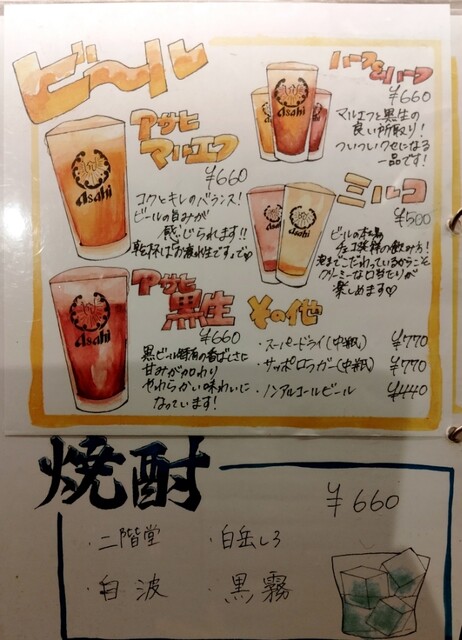 ビール
アサヒ
マルエフ
¥660
コクとキレのバランス!
ビールの旨みが
感じられます!!
乾杯はお疲れ生ですっで♡
アサヒ
黒生
¥660
黒ビール特有の香ばしさに
甘みが加わり
やわらかい味わいに
なっています!
ハーフ&ハーフ
¥660
マルエフと黒生の
良い所取り!
ついついクセになる
一品です!
ミルコ
¥500
ビールの本場
チェコ発祥の飲み方!
泡までこだわっているからこそ
クリーミーな口当たりが
楽しめます♡
その他
・スーパードライ(中瓶) ¥770
・サッポロラガー(中瓶) ¥770
・ノンアルコールビール ¥440
asahi
asahi
asahi
asahi
asahi
焼酎
¥660
・二階堂 ・白岳しろ
・白波 ・黒霧